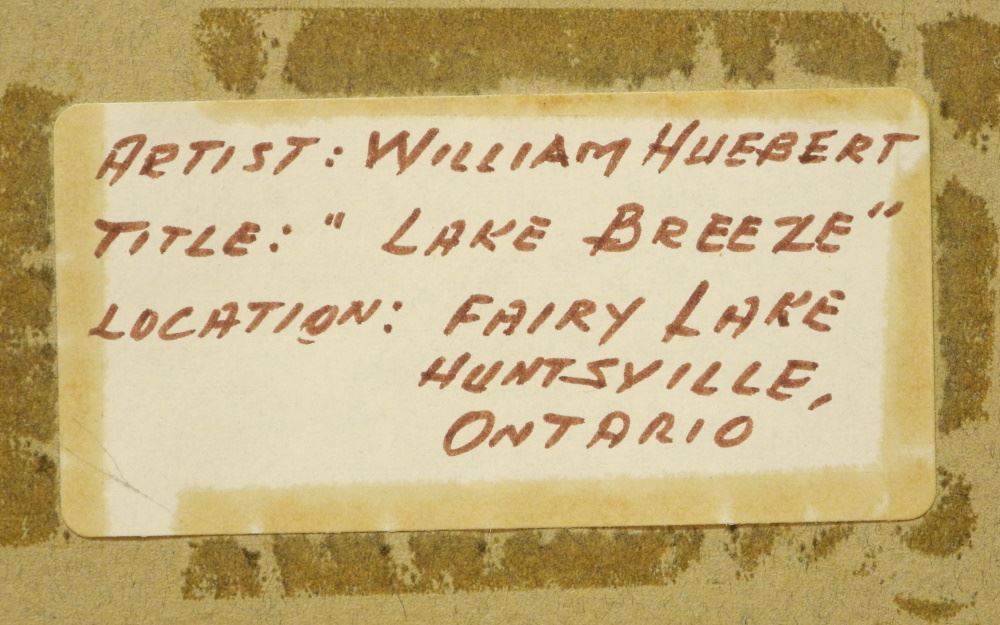 ARTIST: WILLIAM HUEBERT
TITLE: " LAKE BREEZE"
LOCATION: FAIRY LAKE
HUNTSVILLE,
ONTARIO